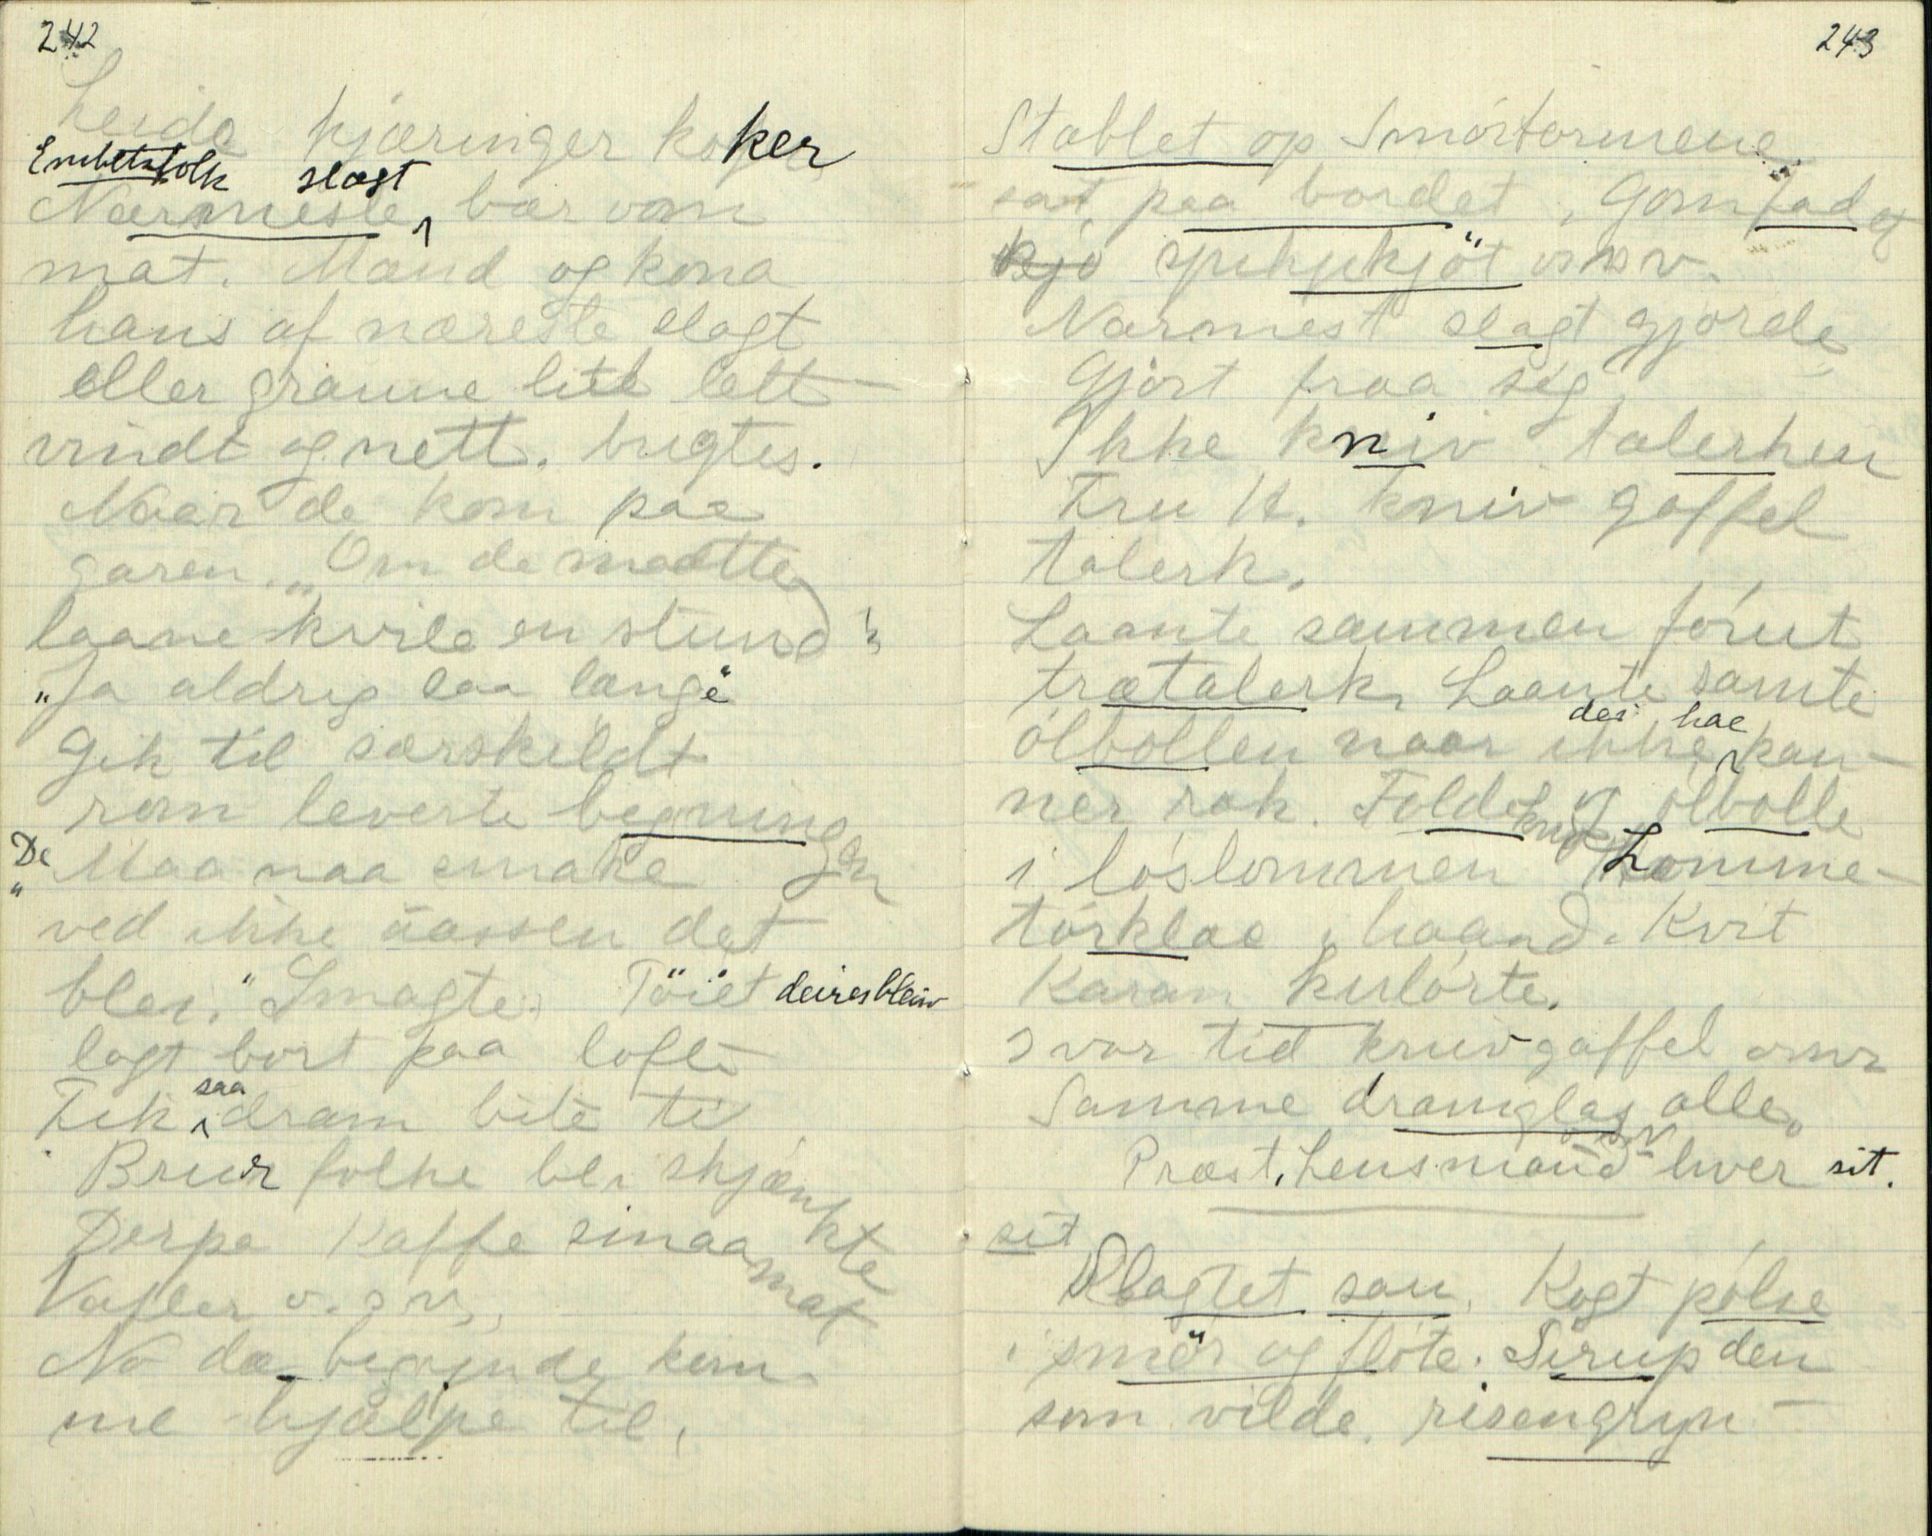 242
Leide kjæringer koker
Embetsfolk slægt
Nærmeste, bær vom
mat. Mand og kona
hans af næreste slagt
eller granne litt lett-
vindt og nett. bugtes.
Naar de kom paa
garen. „Om de maatte
laane kvile en stund"
"Ja aldrig saa længe"
Gik til særskildt
rom leverte begningen
De
"Maa naa smake
ved ikke aassen det
blei." Smagte. Töiet deires bleiv
lagt bort paa lofte
saa
Fik dram bite te
Brur folke ble skjænkte
Derpa Kaffe smaamat
Vafler o.s.v.
No da begynde kom-
me hjælpe til,
243
Stablet op Smörformene
sat paa bordet, Gomfad og
kjö spikjekjöt osv.
Nærmest slagt gjorde
Gjort fraa seg
Ikke kniv talerken
Fru H. kniv gaffel
talerk.
Laante sammen förut
trætalerk, Laante samte
dei hae
ölbollen naar ikke kan-
ner rak. Folde og ölbolle
i löslommen Lomme-
törklæ i haand. Kvit
Karan kulörte.
I vor tid kniv gaffel osv
Samme dramglas alle.
Præst, Lensmand hver sit.
sit
Slagtet sau. Kogt pölse
i smör og flöte. Sirup den
som vilde, risengryn-